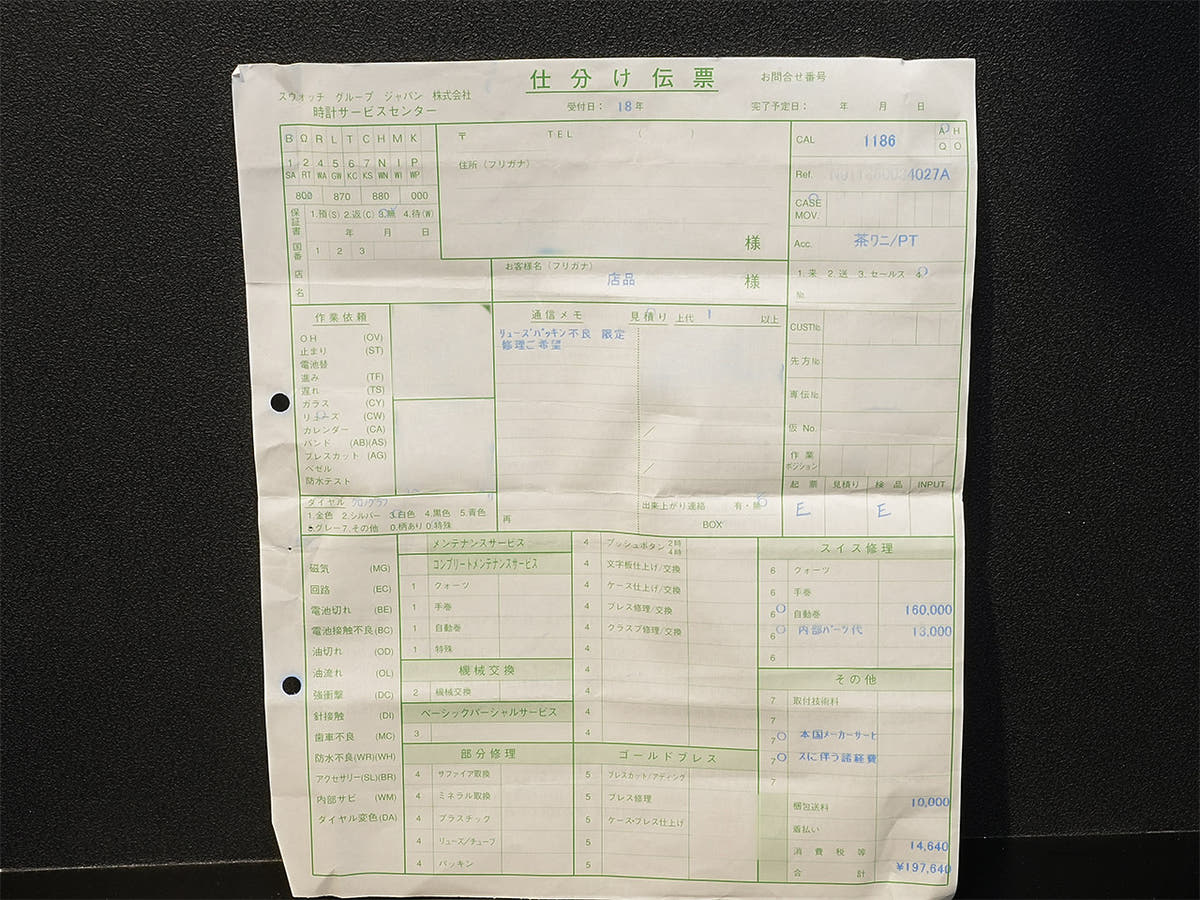 仕分け伝票
お問合せ番号
スウォッチ グループ ジャパン 株式会社
時計サービスセンター
受付日： 18年
完了予定日： 年 月 日
B Ω R L T C H M K
1 2 4 5 6 7 N I P
SA RT WA GW KC KS WN WI WP
800 870 880 000
保証書
1.預(S) 2.返(C) 3.無 4.待(W)
年 月 日
国番
1 2 3
店名
〒 TEL ( )
住所（フリガナ）
様
お客様名（フリガナ）
店品
様
CAL 1186
A H
Q O
Ref. 4027A
CASE
MOV.
Acc. 茶ワニ/PT
1.来 2.送 3.セールス 4.
No.
作業依頼
OH (OV)
止まり (ST)
電池替
進み (TF)
遅れ (TS)
ガラス (CY)
リューズ (CW)
カレンダー (CA)
バンド (AB)(AS)
ブレスカット (AG)
ベゼル
防水テスト
ダイヤル クロノグラフ
1.金色 2.シルバー 3.白色 4.黒色 5.青色
6.グレー 7.その他 0.柄あり 0.特殊
通信メモ
見積り 上代 1 以上
リューズパッキン不良 限定
修理ご希望
再
出来上がり連絡 有・無
BOX
CUST№
先方№
専伝№
仮 No.
作業
ポジション
起票 見積り 検品 INPUT
E E
磁気 (MG)
回路 (EC)
電池切れ (BE)
電池接触不良(BC)
油切れ (OD)
油流れ (OL)
強衝撃 (DC)
針接触 (DI)
歯車不良 (MC)
防水不良(WR)(WH)
アクセサリー(SL)(BR)
内部サビ (WM)
ダイヤル変色(DA)
メンテナンスサービス
コンプリートメンテナンスサービス
1 クォーツ
1 手巻
1 自動巻
1 特殊
機械交換
2 機械交換
ベーシックパーシャルサービス
3
部分修理
4 サファイア取換
4 ミネラル取換
4 プラスチック
4 リューズ/チューブ
4 パッキン
4 プッシュボタン 2時
4時
4 文字板仕上げ/交換
4 ケース仕上げ/交換
4 ブレス修理/交換
4 クラスプ修理/交換
4
4
4
4
4
ゴールドブレス
5 ブレスカット/アディング
5 ブレス修理
5 ケース・ブレス仕上げ
5
5
スイス修理
6 クォーツ
6 手巻
6 自動巻 160,000
6 内部パーツ代 13,000
6
その他
7 取付技術料
7
7 本国メーカーサービ
7 スに伴う諸経費
7
梱包送料 10,000
着払い
消費税等 14,640
合計 ¥197,640